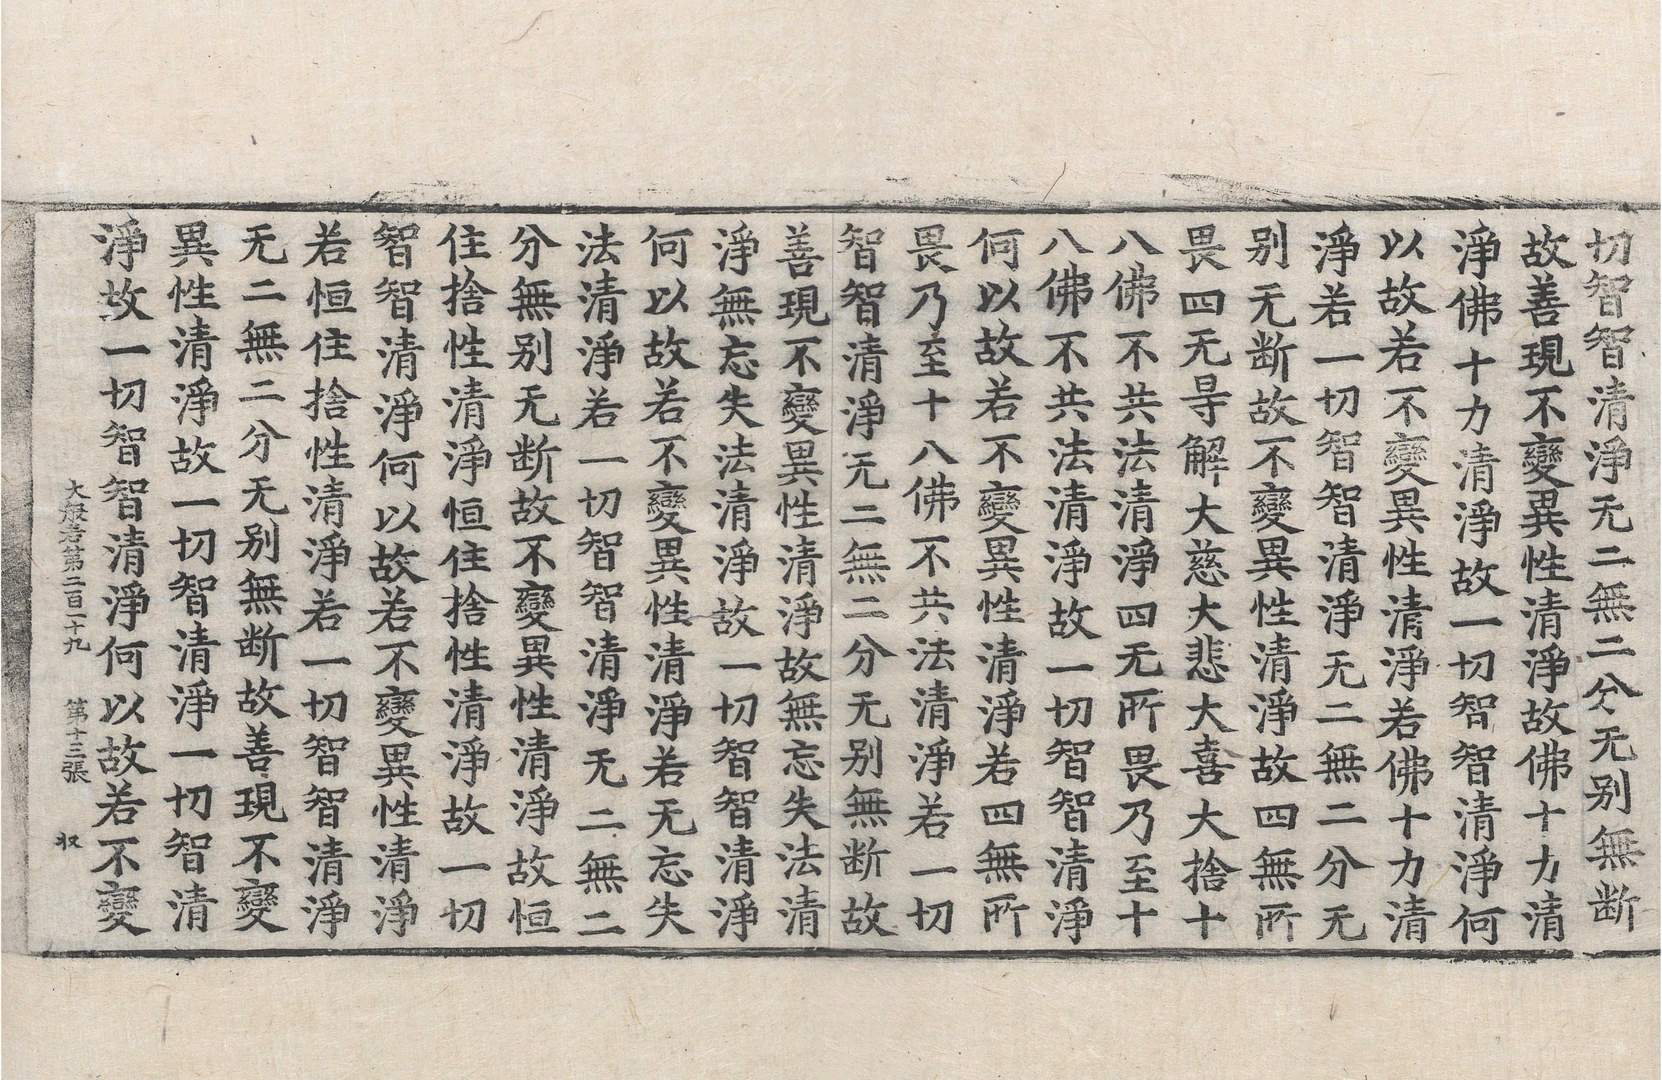 切智智清淨无二無二分无别無断
故善現不變異性清淨故佛十力清
淨佛十力清淨故一切智智清淨何
以故若不變異性清淨若佛十力清
淨若一切智智清淨无二無二分无
别无断故不變異性清淨故四無所
畏四无㝵解大慈大悲大喜大捨十
八佛不共法清淨四无所畏乃至十
八佛不共法清淨故一切智智清淨
何以故若不變異性清淨若四無所
畏乃至十八佛不共法清淨若一切
智智清淨无二無二分无别無断故
善現不變異性清淨故無忘失法清
淨無忘失法清淨故一切智智清淨
何以故若不變異性清淨若无忘失
法清淨若一切智智清淨无二無二
分無别无断故不變異性清淨故恒
住捨性清淨恒住捨性清淨故一切
智智清淨何以故若不變異性清淨
若恒住捨性清淨若一切智智清淨
无二無二分无别無断故善現不變
異性清淨故一切智清淨一切智清
淨故一切智智清淨何以故若不變
大般若第二百一十九 第十三張 收